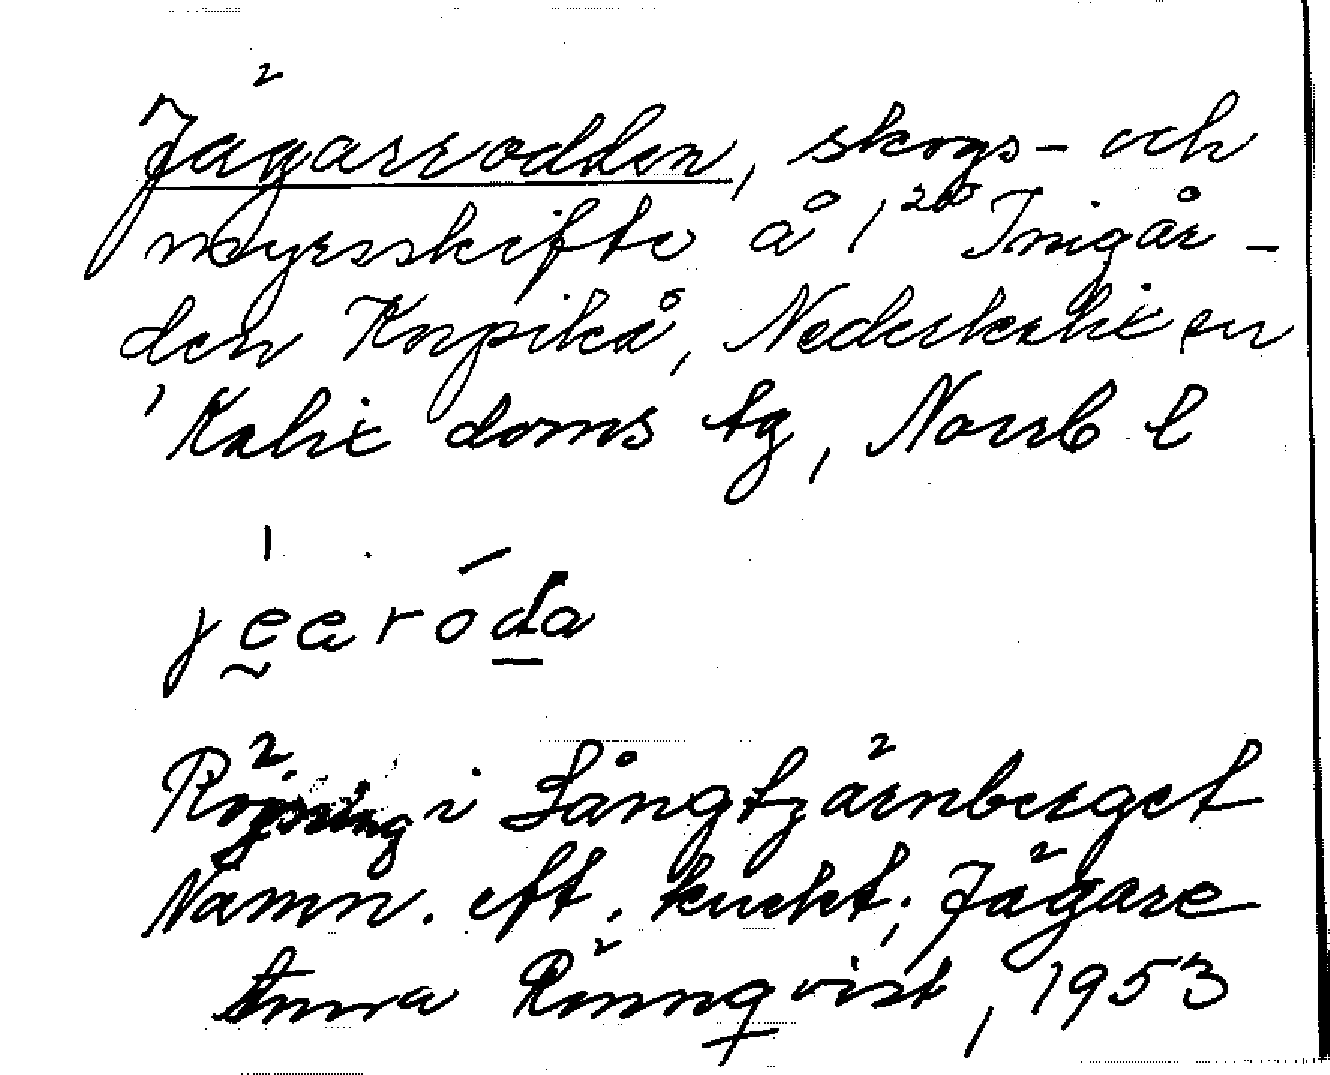 Jägarrödden, skogs- och
myrsskifte å 1²⁶⁵ Inigår-
den Korpikå, Nederkalix sn
Kalix doms tg, Norrb l
Röjning i Långtjärnberget
Namn. eft.
Jägare
Anna Rönnqvist, 1953